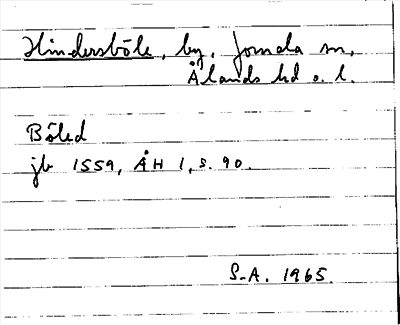 Hindersböle, by, Jomala sn,
Ålands hd o. l.
Böled
jb 1559, ÅH 1, s. 90.
S-A. 1965.